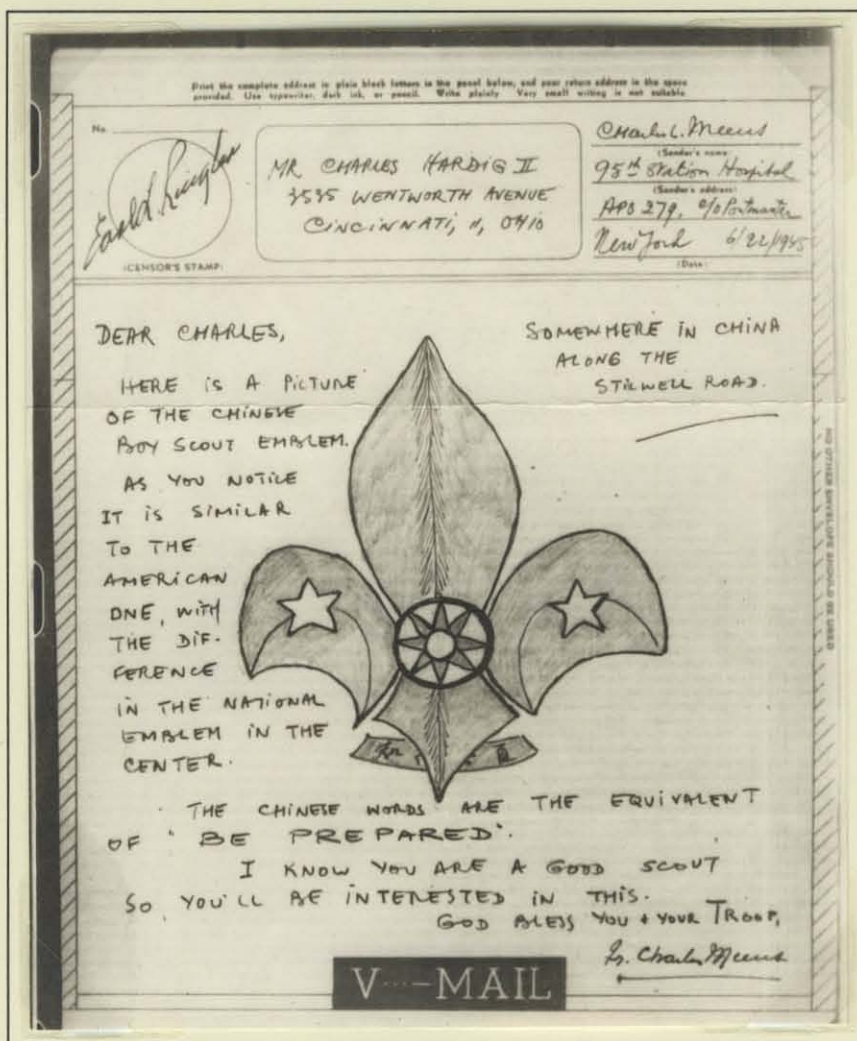 Print the complete address in plain block letters in the panel below, and your return address in the space
provided. Use typewriter, dark ink, or pencil. Write plainly. Very small writing is not suitable.
No.
(CENSOR'S STAMP)
MR CHARLES HARDIG II
3535 WENTWORTH AVENUE
CINCINNATI, OHIO
Charles L. Meeus
(Sender's name)
95th Station Hospital
(Sender's address)
APO 279, c/o Postmaster
New York 6/22/1945
(Date)
DEAR CHARLES,
SOMEWHERE IN CHINA
ALONG THE
STILWELL ROAD.
HERE IS A PICTURE
OF THE CHINESE
BOY SCOUT EMBLEM.
AS YOU NOTICE
IT IS SIMILAR
TO THE
AMERICAN
ONE, WITH
THE DIF-
FERENCE
IN THE NATIONAL
EMBLEM IN THE
CENTER.
THE CHINESE WORDS ARE THE EQUIVALENT
OF 'BE PREPARED'.
I KNOW YOU ARE A GOOD SCOUT
SO YOU'LL BE INTERESTED IN THIS.
GOD BLESS YOU + YOUR TROOP,
Fr. Charles Meeus
V···—MAIL
NO OTHER ENVELOPE SHOULD BE USED